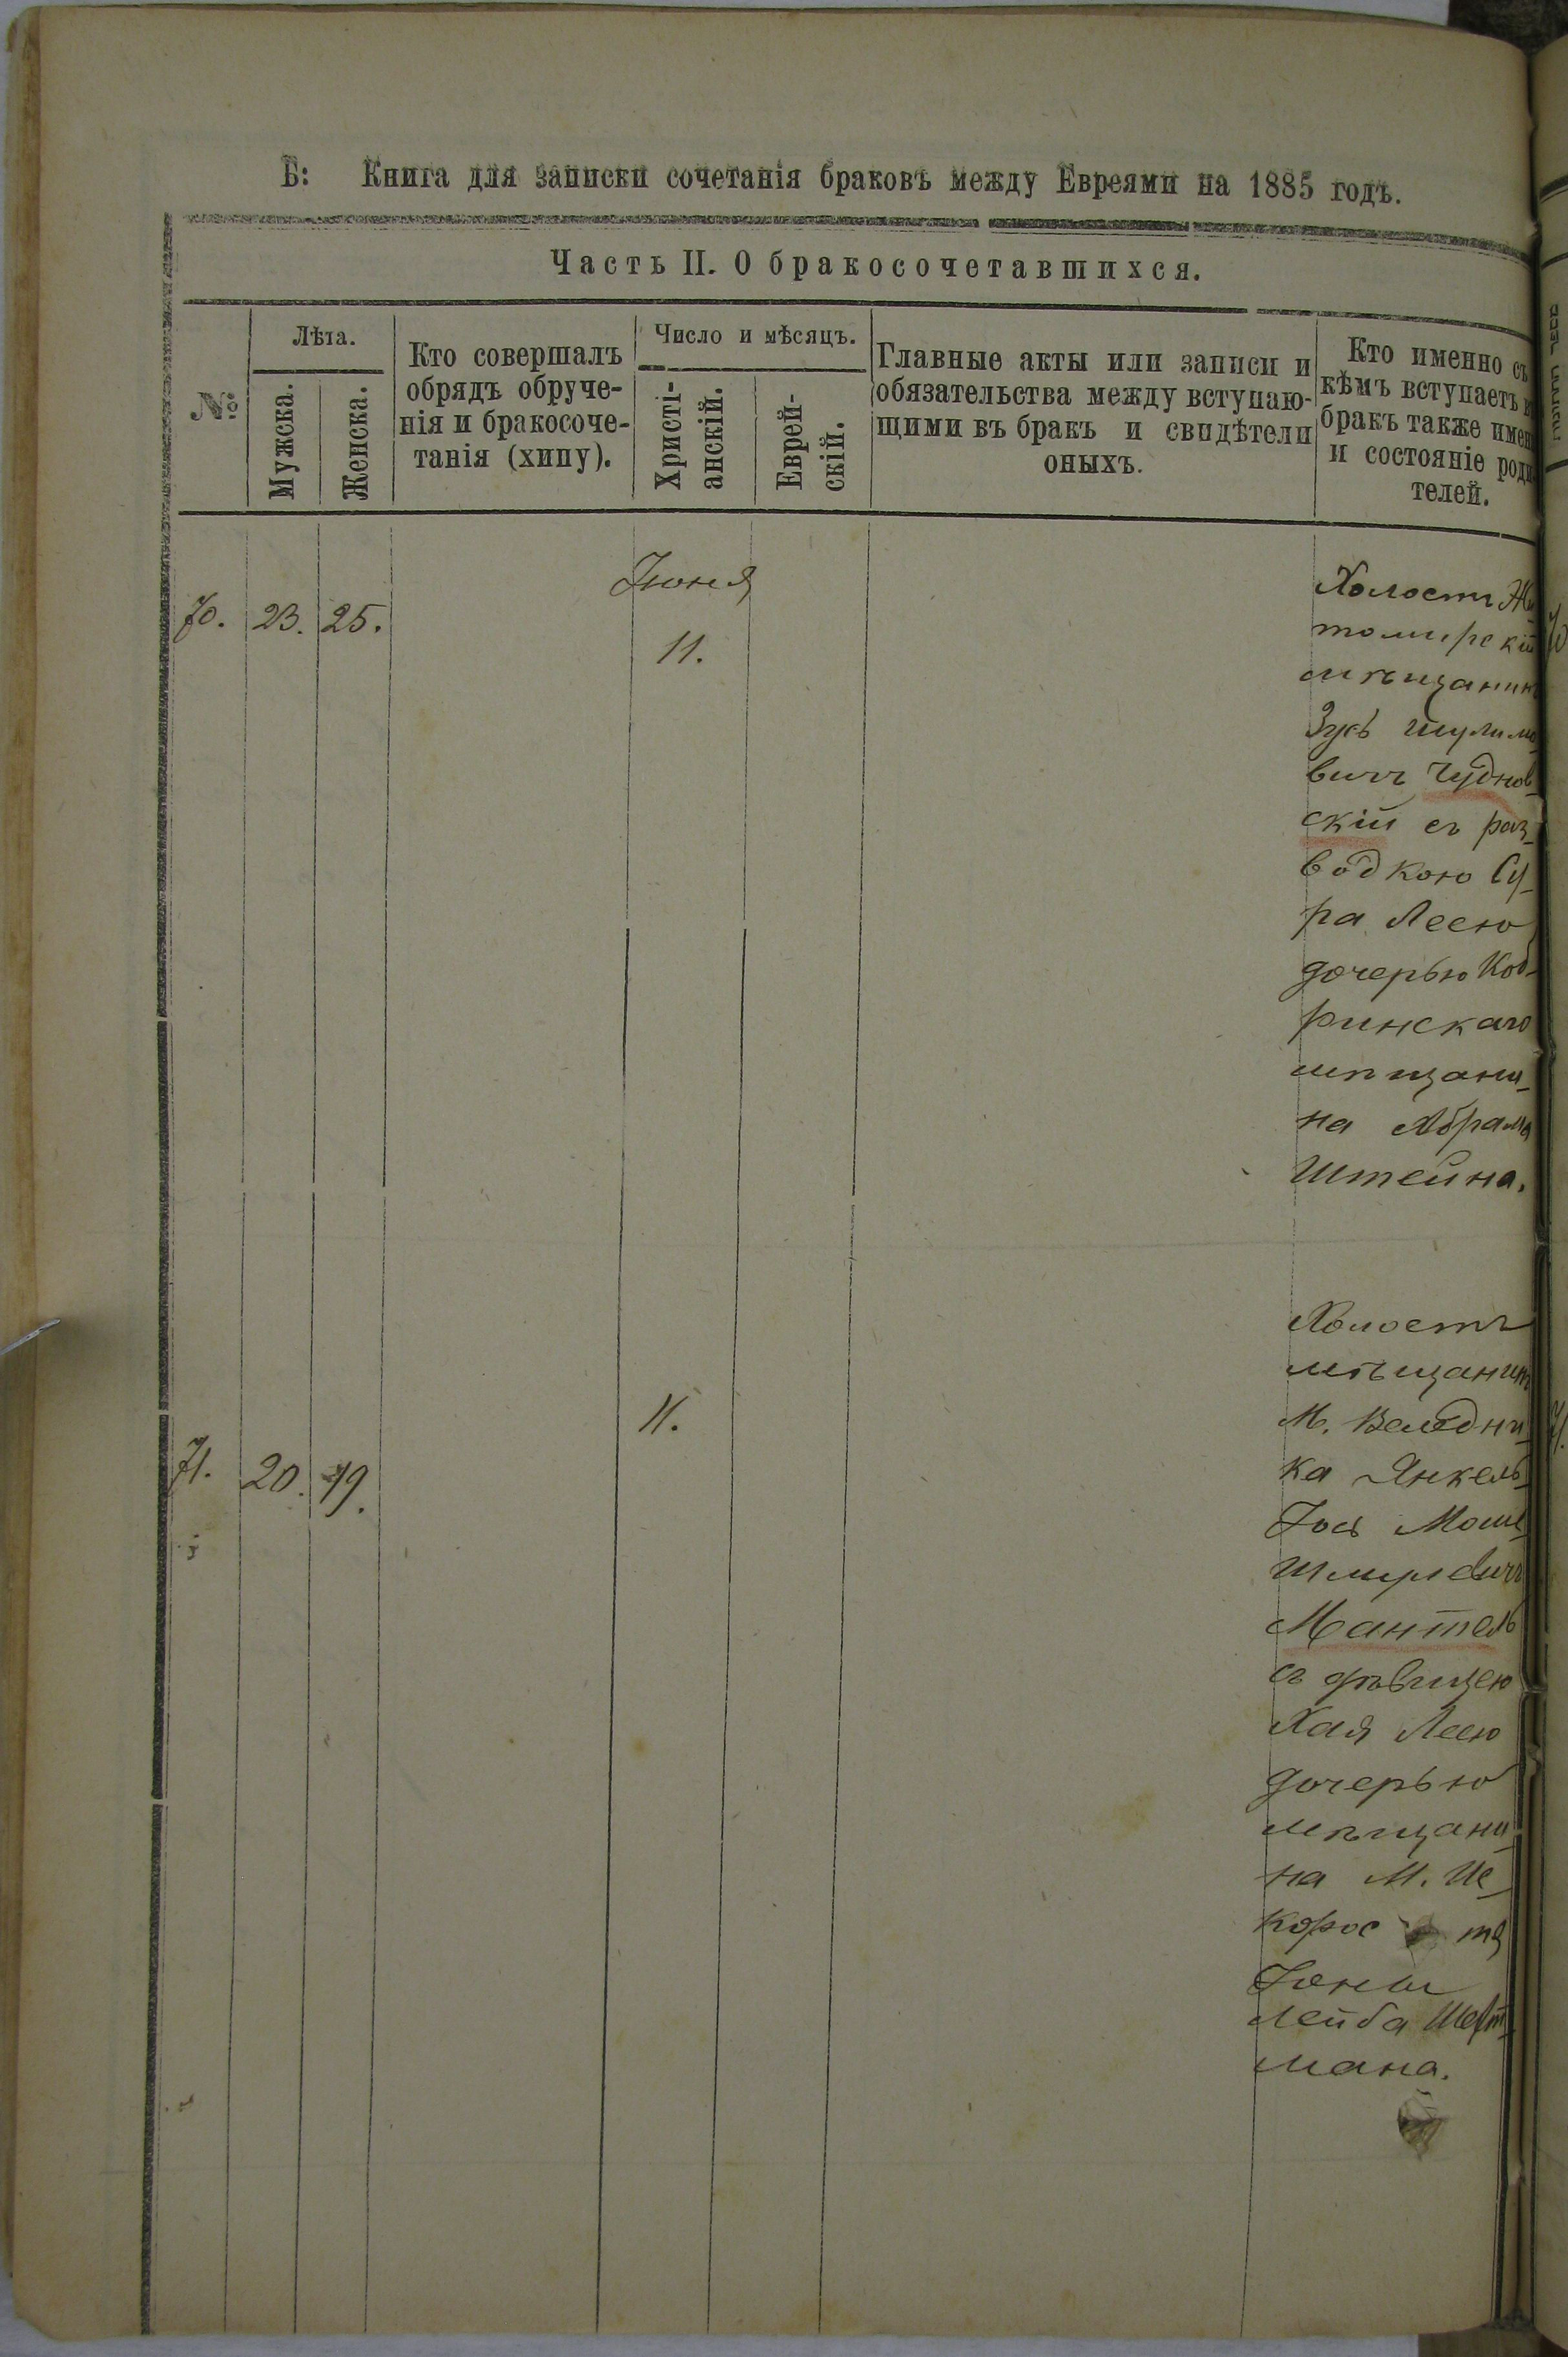 Б: Книга для записки сочетанія браковъ между Евреями на 1885 годъ.
Часть II. О бракосочетавшихся.
№
Лѣта.
Мужска.
Женска.
Кто совершалъ
обрядъ обруче-
нія и бракосоче-
танія (хипу).
Число и мѣсяцъ.
Христі-
анскій.
Еврей-
скій.
Главные акты или записи и
обязательства между вступаю-
щими въ бракъ и свидѣтели
оныхъ.
Кто именно съ
кѣмъ вступаетъ
бракъ также
и состояніе роди
телей.
70. 23. 25.
Іюня
11.
Холостъ Жи
томирскій
мѣщанинъ
Зусь Шулимо
вичъ Чуднов-
скій съ раз-
водкою Су-
ра Леею
дочерью Коб-
ринскаго
мѣщани-
на Абрама
Штейна.
71. 20. 19.
11.
Холостъ
мѣщанинъ
М. Веледни-
ка Янкель
Іось
Шмулевичъ
Мантель
съ дѣвицею
Хая Леею
дочерью
мѣщани-
на М. Ис-
корос тя
Іоны
Лейба
мана.